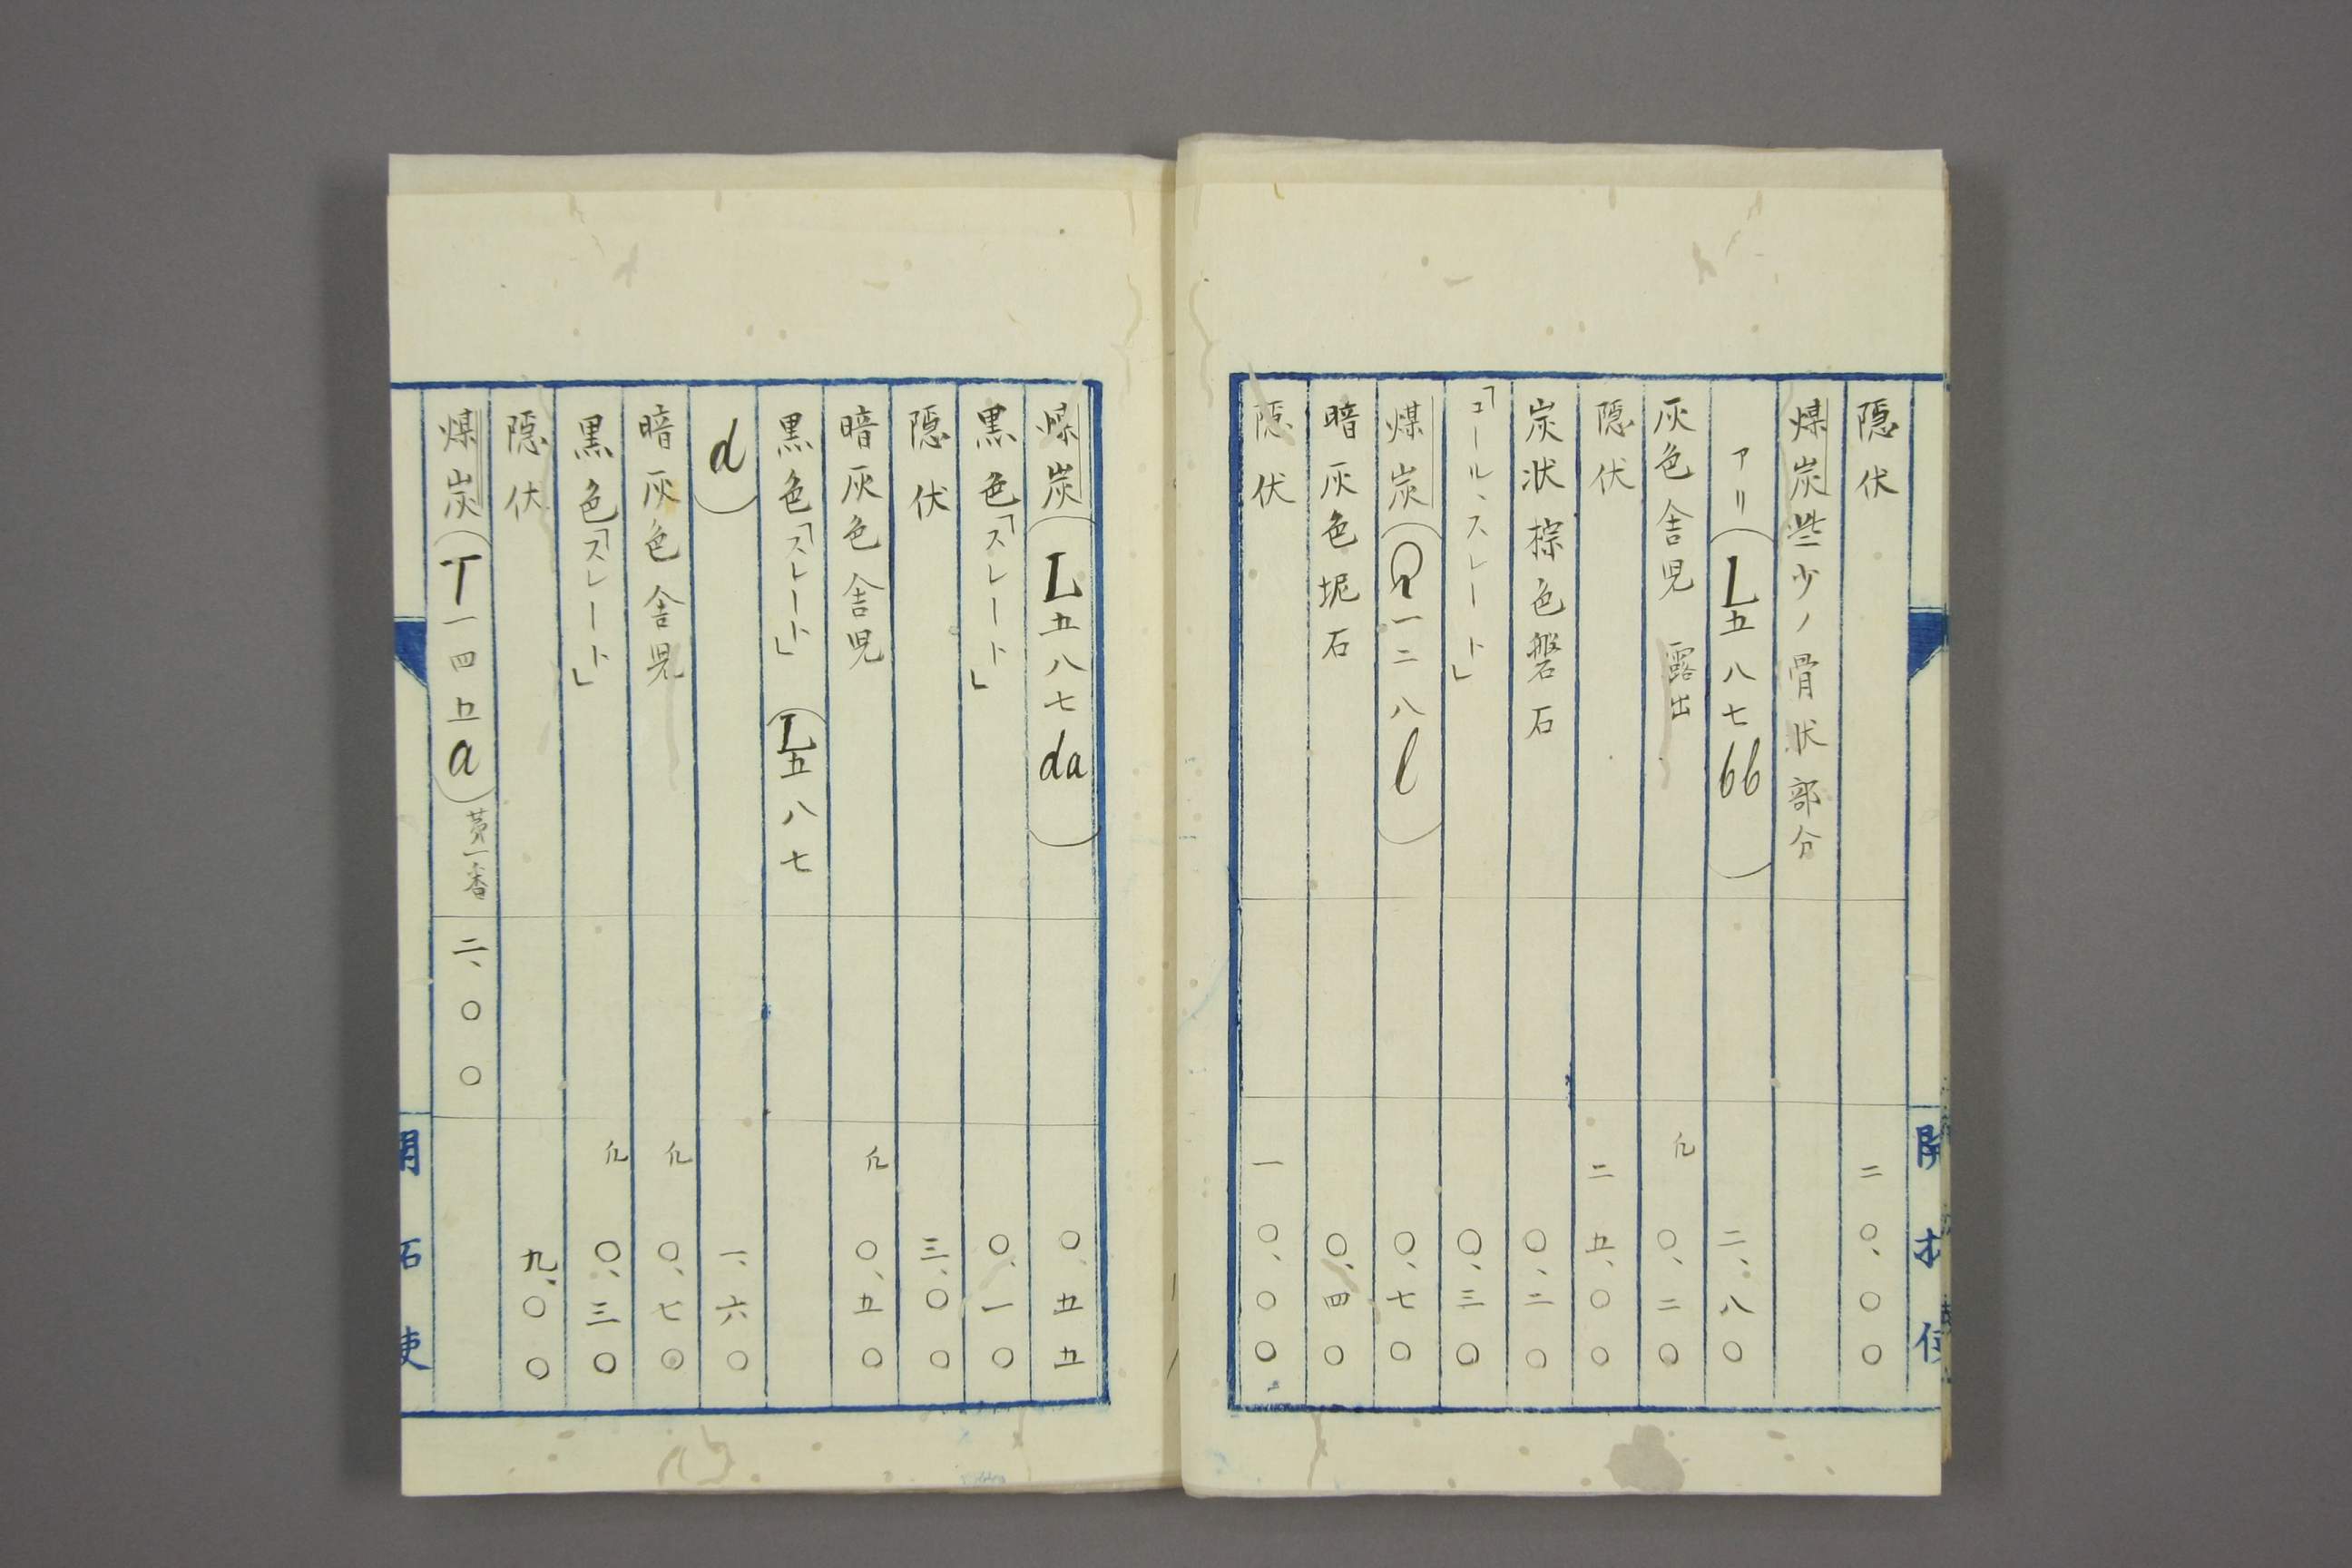 隠伏 二〇、〇〇
煤炭些少ノ骨状部分
アリ(L五八七bb) 二、八〇
灰色舎児 露出 凢〇、二〇
隠伏 二五、〇〇
炭状棕色磐石 〇、二〇
「コールスレート」 〇、三〇
煤炭(Q一二八l) 〇、七〇
暗灰色坭石 〇、四〇
隠伏 一〇、〇〇
開拓使
煤炭(L五八七da) 〇、五五
黒色「スレート」 〇、一〇
隠伏 三、〇〇
暗灰色舎児 凢〇、五〇
黒色「スレート」(L五八七
d) 一、六〇
暗灰色舎児 凢〇、七〇
黒色「スレート」 凢〇、三〇
隠伏 九、〇〇
煤炭(T一四五a)第一番 二、〇〇
開拓使